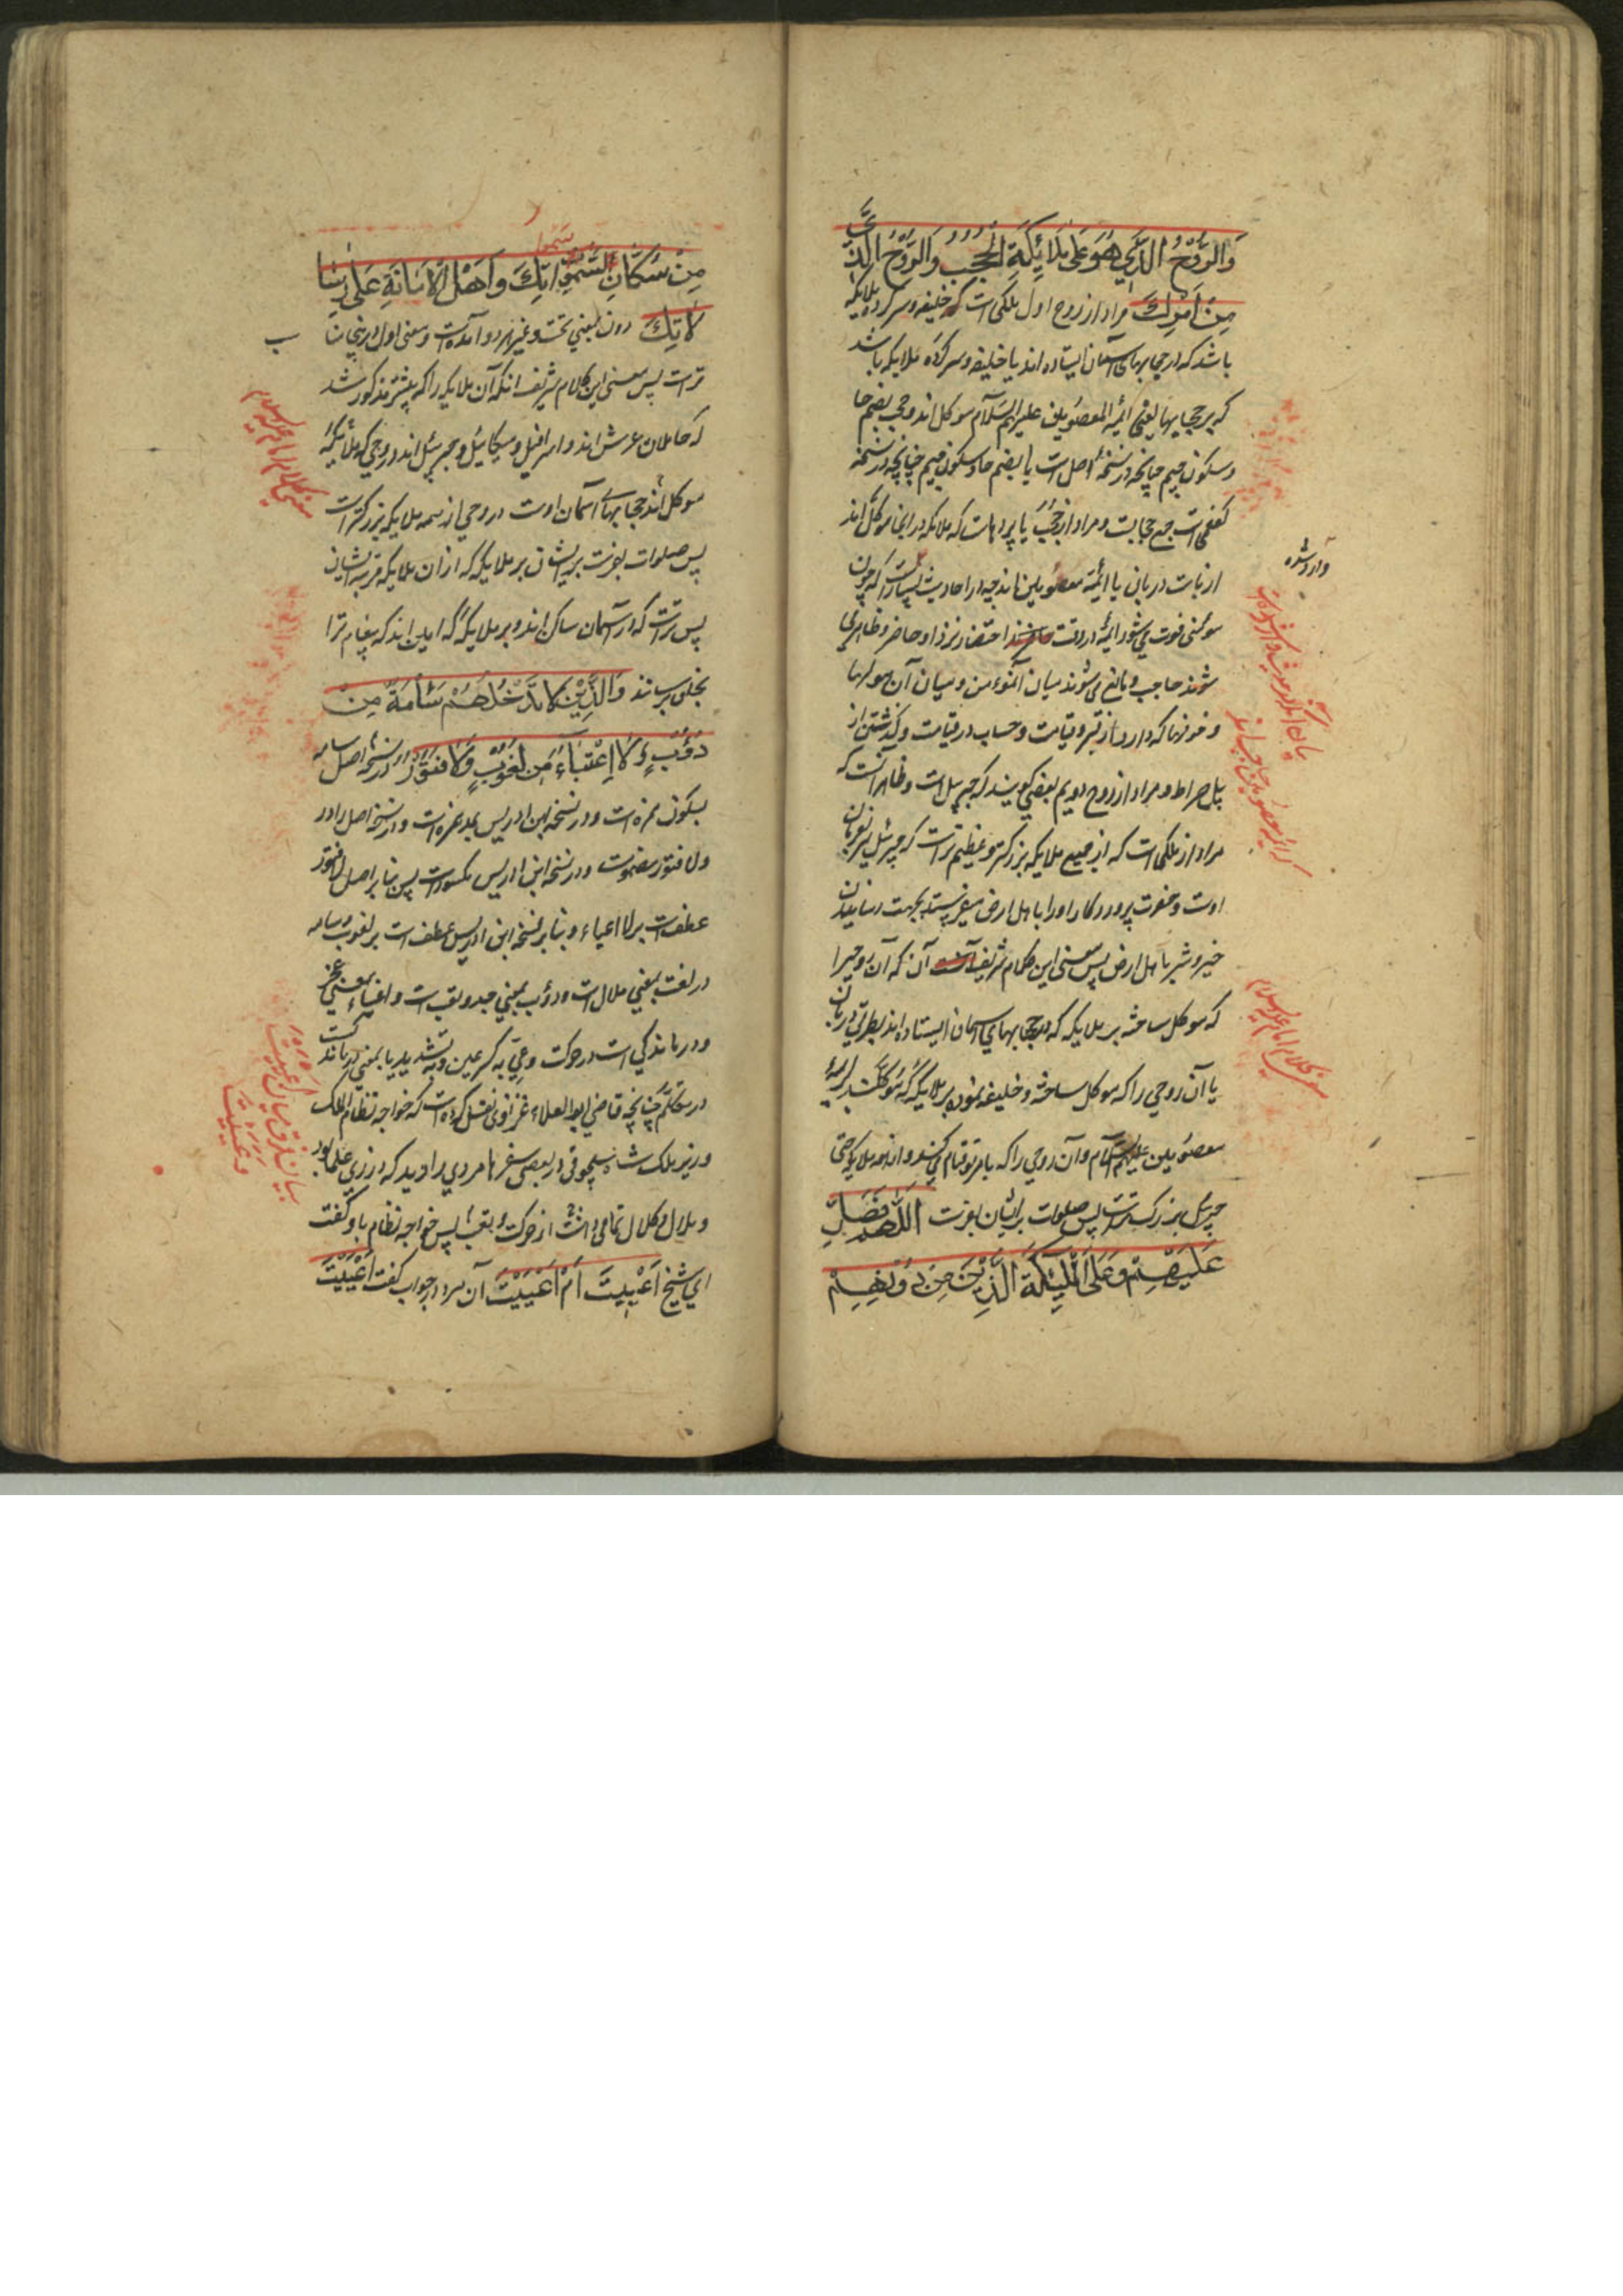 وَالرُّوْحُ الَّذِي هُوَ عَلَى مَلَائِكَةِ الْحُجُبِ وَالرُّوْحُ الَّذِي
مِنْ اَمْرِكَ مراد از روح اول ملکی است که خلیفه و سرکرده ملایکه
باشد که در حجابهای آسمان ایستاده اند یا خلیفه و سرکرده ملایکه باشد
که بر حجابها یعنی ائمه المعصومین علیهم السلام موکل اند و حجب بضم حا
و سکون جیم چنانچه در نسخهٔ اصل است یا بضم حا و سکون جیم چنانچه در نسخهٔ
کفعمی است جمع حجابست و مراد از حجب یا پردهاست که ملایکه در انجا موکل اند
از بابت دربانی یا ائمه معصومین اند چه در احادیث بسیار است که چون
مومنی فوت می شود ائمه در وقت احتضار نزد او حاضر و ظاهر می
شوند حاجب و مانع می شوند میان آنمومن و میان آن هولها
و خوفها که دارد از قبر و قیامت و حساب در قیامت و گذشتن از
پل صراط و مراد از روح دویم بعضی گویند که جبرییل است و ظاهر آنست که
مراد از ملکی است که از جمیع ملایکه بزرگتر و عظیم تر است که جبرئیل بفرمان
اوست و حضرت پروردکار او را با هل ارض میفرستد بجهت رسانیدن
خیر و شر باهل ارض پس معنی این کلام شریف آن که آن روحیرا
که موکل ساخته بر ملایکه که در حجابهای آسمان ایستاده اند بطریق دربان
یا آن روحی را که موکل ساخته و خلیفه نموده بر ملایکه که موکلند بر ائمه
معصومین علیهم السلام و آن روحی را که بامر تو قیام می کند و از همه ملایکه حتی
جبرئیل بزرک تر است پس صلوات بر ایشان بفرست اَللّٰهُمَّ فَصَلِّ
عَلَيْهِمْ وَعَلَى الْمَلٰئِكَةِ الَّذِيْنَ مِنْ دُوْنِهِمْ
وارد شده
معنی کلام امام علیه السلام
مِنْ سُكَّانِ السَّمٰوَاتِكَ وَاَهْلِ الْاَمَانَةِ عَلَى رِسَا
لَاتِكَ دون بمعنی تحت و غیر هر دو آمده است و معنی اول در اینجا منا
سب
تر است پس معنی این کلام شریف انکه آن ملایکه را که پیشتر مذکور شد
که حاملان عرش اند و اسرافیل و میکاییل و جبرییل اند و روحی که ملائیکهٔ
موکل اند حجابهای آسمان اوست و روحی از همه ملایکه بزرکتر است
پس صلوات بفرست بر ایشان بر ملایکه که از ان ملایکه مرتبه ایشان
پس تر است که در آسمان ساکن اند و بر ملایکه که امین اند که پیغام ترا
بخلق برسانند وَالَّذِيْنَ لَا تَدْخُلُهُمْ سَئْامَةٌ مِنْ
دُؤُبٍ وَلَا اِعْيَاءٌ مِنْ لُغُوْبٍ وَلَا فُتُوْرٌ در نسخهٔ اصل سامه
بسکون همزه است و در نسخه ابن ادریس بمد همزه است و در نسخهٔ اصل را در
ولا فتور مضمومست و در نسخه ابن ادریس مکسور است پس بنا بر اصل لا فتور
عطف است بر لا اعیاء و بنا بر نسخهٔ ابن ادریس عطف است بر لغوب و سامه
در لغت بمعنی ملال است و دؤب بمعنی جد و تعب است و اعیاء بمعنی عجز
و درماندگی است در حرکت و عِیّ به کسر عین و به تشدید یا بمعنی درماندگیست
در تکلم چنانچه قاضی ابو العلاء غزنوی نقل کرده است که خواجه نظام الملک
وزیر ملک شاه سلجوقی در بعضی سفرها مردی را دید که در زی علما بود
و ملال و کلال تمامی داشت از حرکت و تعب پس خواجه نظام باو گفت
ای شیخ اَعْيَيْتَ اَمْ اَعَيِيْتَ آن مرد در جواب گفت اَعْيَيْتُ
معنی کلام امام علیه السلام
بیان فرق میان اعییت
و عییت